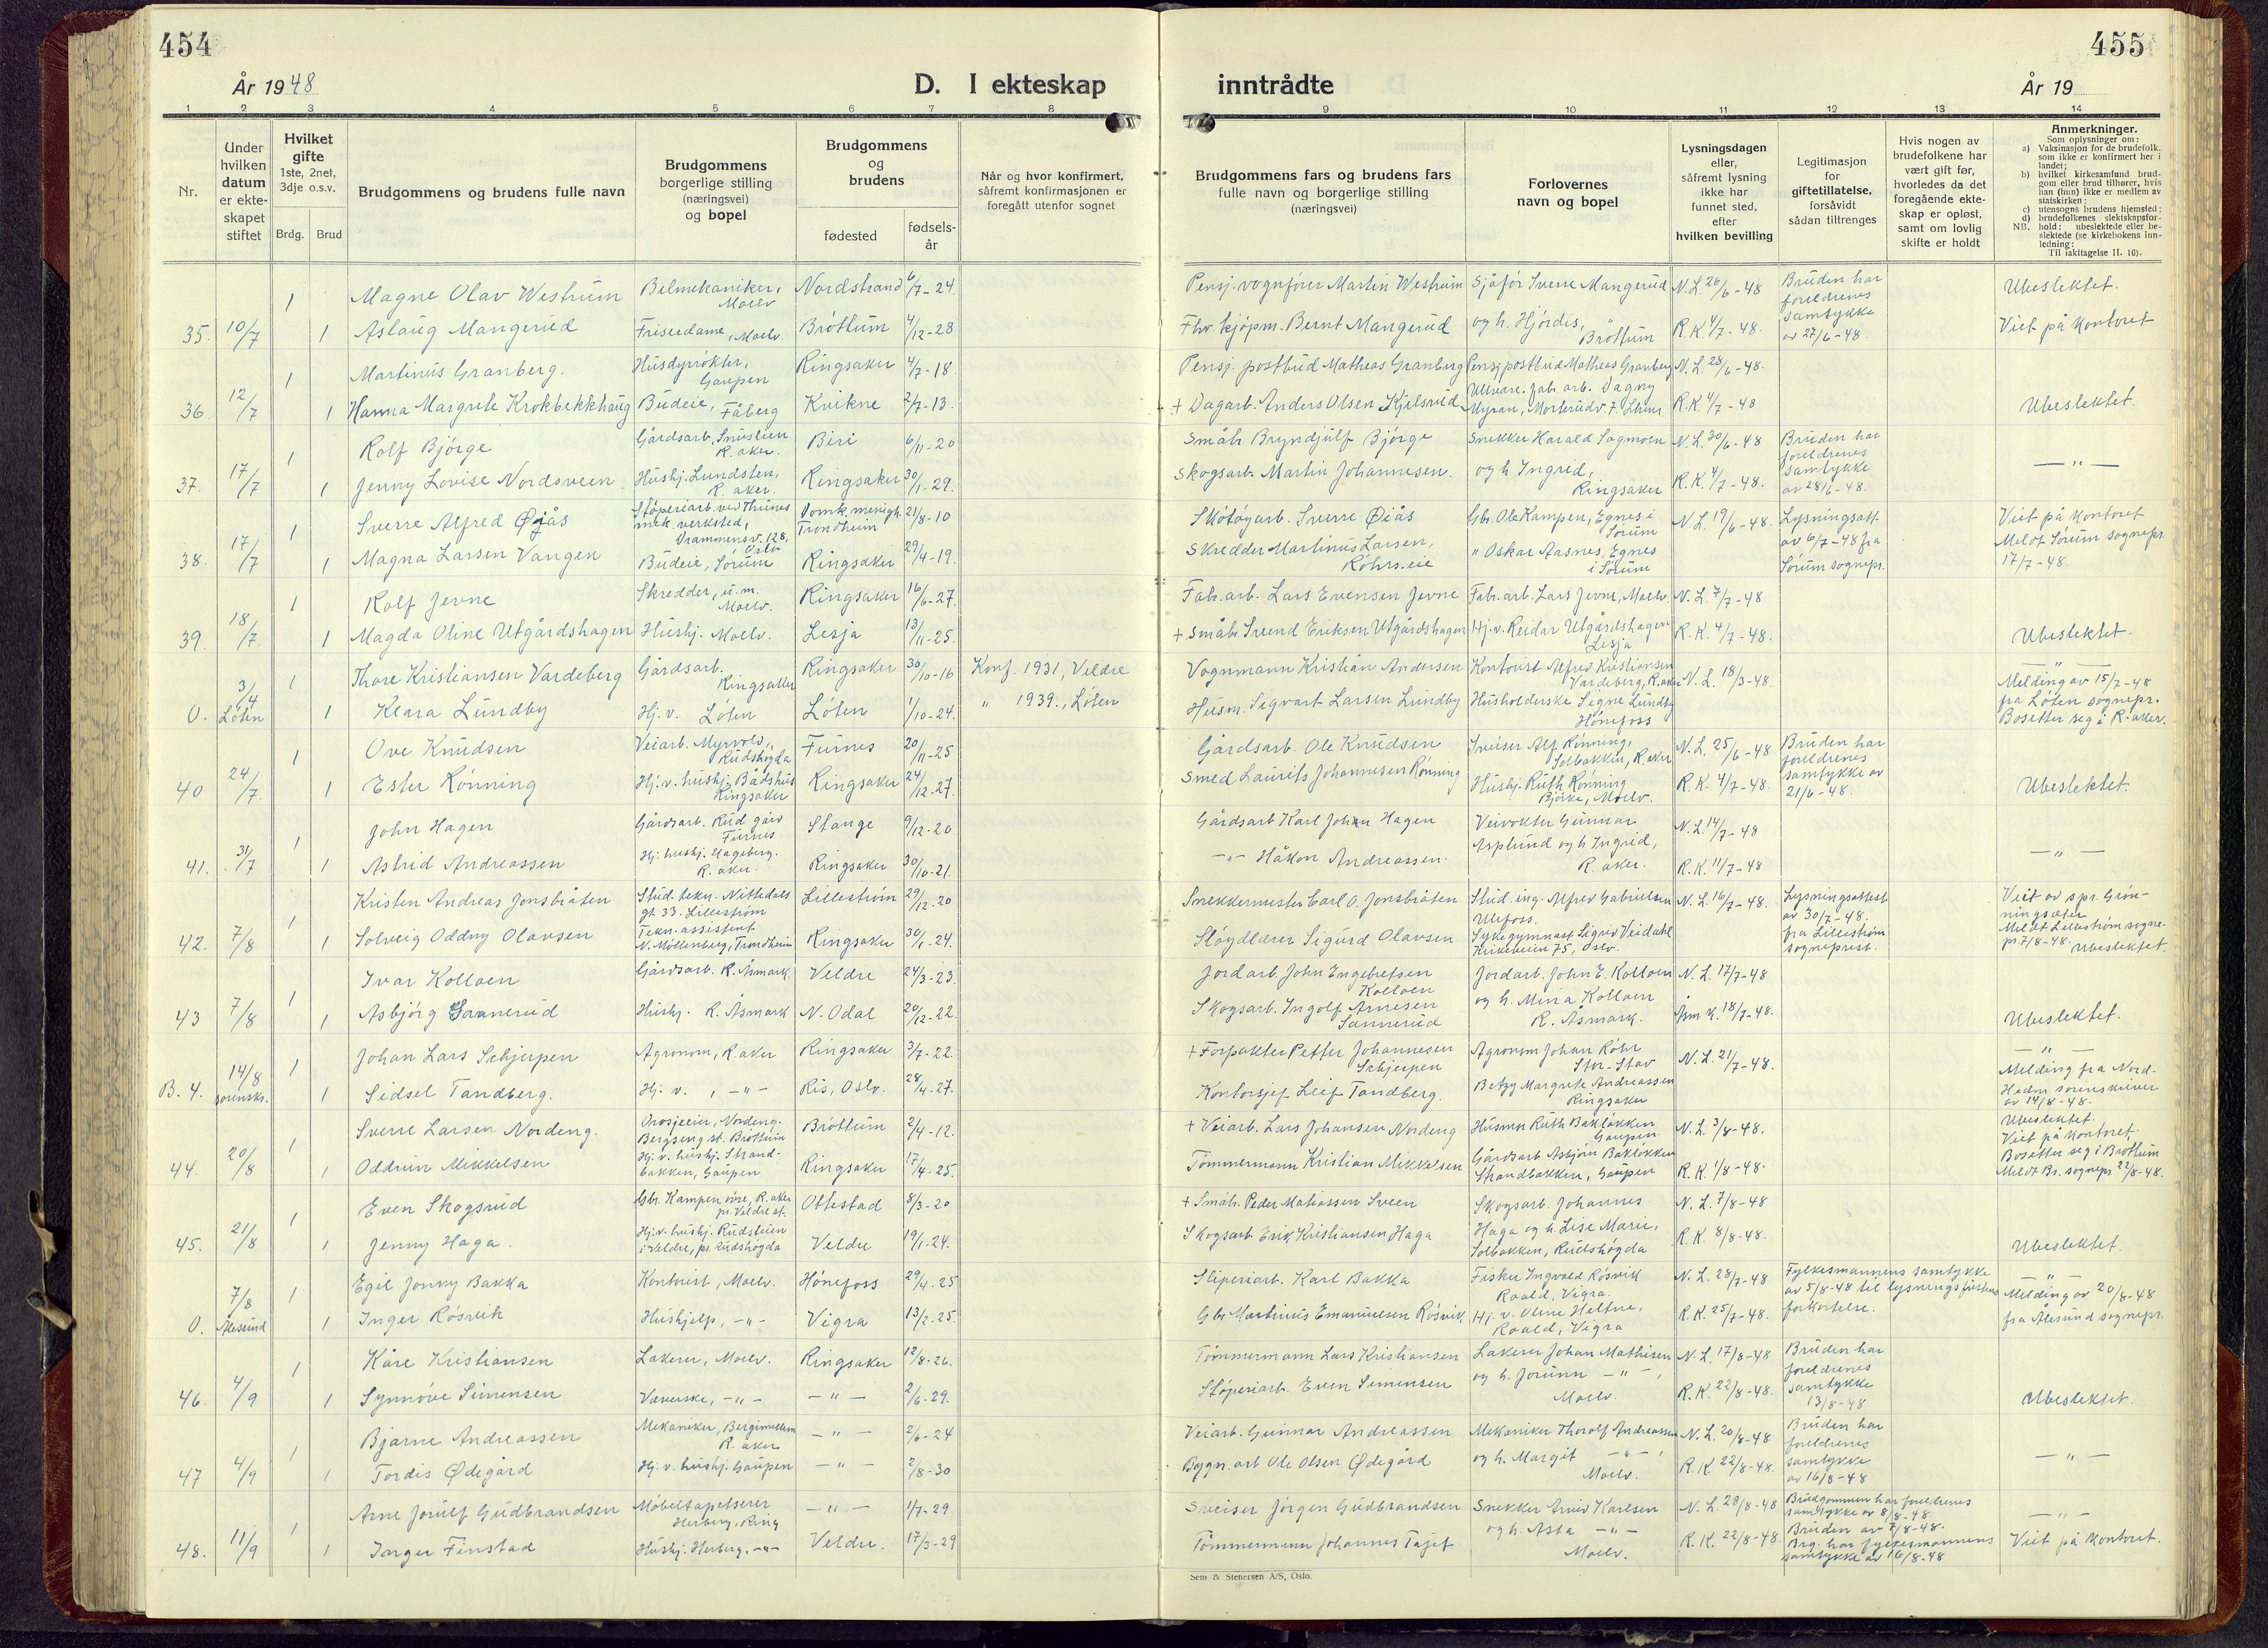 454
455
År 1948
D. I ekteskap
inntrådte
År 19
1 2 3 4 5 6 7 8
9 10 11 12 13 14
Nr.
Under hvilken datum er ekteskapet stiftet
Hvilket gifte 1ste, 2net, 3dje o.s.v.
Brdg. Brud
Brudgommens og brudens fulle navn
Brudgommens borgerlige stilling (næringsvei) og bopel
Brudgommens og brudens
fødested
fødsels-år
Når og hvor konfirmert, såfremt konfirmasjonen er foregått utenfor sognet
Brudgommens fars og brudens fars fulle navn og borgerlige stilling (næringsvei)
Forlovernes navn og bopel
Lysningsdagen eller, såfremt lysning ikke har funnet sted, efter hvilken bevilling
Legitimasjon for giftetillatelse, forsåvidt sådan tiltrenges
Hvis nogen av brudefolkene har vært gift før, hvorledes da det foregående ekteskap er opløst, samt om lovlig skifte er holdt
Anmerkninger.
Som oplysninger om:
a) Vaksinasjon for de brudefolk, som ikke er konfirmert her i landet;
b) hvilket kirkesamfund brudgom eller brud tilhører, hvis han (hun) ikke er medlem av statskirken;
c) utensogns brudens hjemsted;
d) brudefolkenes slektskapsforhold: ubeslektede eller beslektede (se kirkebokens innledning:
NB.
Til iakttagelse II. 10).
1 Magne Olav Westrum Bilmekaniker, Moelv Nordstrand 6/7-24. Pensj. vognfører Martin Westrum Sjåfør Sverre Mangerud N.L. 26/6-48 Bruden har foreldrenes samtykke av 27/6-48. Ubeslektet.
35. 10/7 1 Aslaug Mangerud Friserdame, Moelv. Brøttum 4/12-28 Fhv. kjøpm. Bernt Mangerud og h. Hjørdis, Brøttum R.K. 4/7-48. Viet på kontoret
1 Martinus Granberg. Husdyrrøkter, Gaupen Ringsaker 4/7-18. Pensj. postbud Matheas Granberg Pensj. postbud Matheas Granberg N.L. 28/6-48.
36. 12/7 1 Hanna Margrete Krokbekkhaug Budeie, Fåberg Kvikne 2/7-13. + Dagarb. Anders Olsen Kjelsrud fab. arb. Dagny Myran, R.K. 4/7-48 Ubeslektet.
1 Rolf Bjørge Gårdsarb. R. aker. Biri 6/11-20 Småbr. Bryndjulf Bjørge Snekker Harald Sagmoen N.L. 30/6-48 Bruden har foreldrenes samtykke av 28/6-48.
37. 17/7 1 Jenny Lovise Nordsveen Hushj. Lundsten, R. aker. Ringsaker 30/1-29. Skogsarb. Martin Johannesen. og h. Ingrid, Ringsaker R.K. 4/7-48. — " —
1 Sverre Alfred Øjås Støperiarb. ved Thunes mek. verksted, Drammensv. 128, Oslo Domk. menigh. Trondheim 21/8-10 Skotøyarb. Sverre Øiås Gbr. Ole Kampen, Egnes i Sørum N.L. 19/6-48. Lysningsatt. av 6/7-48 fra Sørum sognepr. Viet på kontoret Meldt Sørum sognepr. 17/7-48
38. 17/7 1 Magna Larsen Vangen Budeie, Sørum Ringsaker 29/4-19. Skredder Martinus Larsen, Røhrs.eie " Oskar Aasnes, Egnes i Sørum
1 Rolf Jevne Skredder, u.m. Moelv. Ringsaker 16/6-27. Fab. arb. Lars Evensen Jevne Fab. arb. Lars Jevne, Moelv. N.L. 7/7-48
39. 18/7 1 Magda Oline Utgårdshagen Hushj. Moelv. Lesja 13/11-25. + Småbr. Svend Eriksen Utgårdshagen Hj. v. Reidar Utgårdshagen Lesja R.K. 4/7-48. Ubeslektet.
1 Thore Kristiansen Vardeberg Gårdsarb. Ringsaker Ringsaker 30/10-16 Konf. 1931, Veldre Vognmann Kristian Andersen Kontorist Alfred Kristiansen Vardeberg, R. aker N.L. 18/3-48 — " — Melding av 15/7-48 fra Løten sognepr. Bosetter seg i R. aker.
0. 3/4 Løten 1 Klara Lundby Hj. v. Løten Løten 1/10-24. " 1939., Løten Husm. Sigvart Larsen Lundby Husholderske Signe Lundby Hønefoss
1 Ove Knudsen Veiarb. Myrvold, Rudshøgda Furnes 20/11-25 Gårdsarb. Ole Knudsen Sveiser Alf Rønning, Solbakken, R. aker N.L. 25/6-48 Bruden har foreldrenes samtykke av 21/6-48.
40 24/7 1 Ester Rønning Hj. v. hushj. Bådshus Ringsaker Ringsaker 24/12-27. Smed Laurits Johannesen Rønning Hushj. Ruth Rønning Bjørke, Moelv. R.K. 4/7-48. Ubeslektet.
1 John Hagen Gårdsarb. Rud gård Furnes Stange 9/12-20 Gårdsarb Karl Johan Hagen Veivokter Gunnar Asplund og h Ingrid, R. aker. N.L. 14/7-48
41. 31/7 1 Astrid Andreassen Hj. hushj. Hageberg. R. aker. Ringsaker 30/10-21. —"— Håkon Andreassen. R.K. 11/7-48 — " —
1 Kristen Andreas Jonsbråten Stud. tekn. Nittedals gt 33. Lillestrøm Lillestrøm 29/12-20 Snekkermester Carl O. Jonsbråten Stud. ing. Alfred Gabrielsen Ulefoss. N.L. 16/7-48. Lysningsattest av 30/7-48. fra Lillestrøm sogneprest. Viet av spr. Grønningsæter Meldt Lillestrøm sognepr. 7/8-48. Ubeslektet.
42. 7/8 1 Solveig Oddny Olavsen Tekn. assistent N. Møllenberg, Trondheim Ringsaker 30/1-24. Sløydlærer Sigurd Olavsen Sykegymnast Sigrid Veidahl Kirkeveien 75, Oslo.
1 Ivar Kolloen Gårdsarb. R. Åsmark Veldre 24/3-23. Jordarb. John Engebretsen Kolloen Jordarb. John E. Kolloen N.L. 17/7-48
43 7/8 1 Asbjørg Sannerud Hushj. R. Åsmark N. Odal 20/12-22. Skogsarb. Ingolf Arnesen Sannerud og h. Mina Kolloen R. Åsmark. Åsm K. 18/7-48. Ubeslektet.
1 Johan Lars Schjerpen Agronom, R.aker Ringsaker 3/7-22. + Forpakter Petter Johannesen Schjerpen Agronom Johan Røhr Stor-Stav N.L. 21/7-48. — " — Melding fra Nord-Hedm sorenskriver av 14/8-48.
B. 4. 14/8 sorenskr. 1 Sidsel Tandberg. Hj. v. , —"— Ris, Oslo. 28/4-27. Kontorsjef Leif Tandberg. Betzy Margrete Andreassen Ringsaker
1 Sverre Larsen Nordeng. Drosjeeier, Nordeng. Bergseng st. Brøttum Brøttum 2/4-12. + Veiarb. Lars Johansen Nordeng Husmor Ruth Bakløkken Gaupen N.L. 3/8-48. Ubeslektet. Viet på kontoret. Bosetter seg i Brøttum Meldt Br. sognepr 22/8-48.
44. 20/8 1 Oddrun Mikkelsen Hj. v. hushj. Strandbakken, Gaupen Ringsaker 17/4-25. Tømmermann Kristian Mikkelsen Gårdsarb Asbjørn Bakløkken Strandbakken, Gaupen R.K. 1/8-48.
1 Even Skogsrud Gbr. Kampen øvre, R. aker pr. Veldre st. Ottestad 8/3-20 + Småbr. Peder Matiassen Sveen Skogsarb. Johannes Haga og h. Lise Marie, Solbakken, Rudshøgda N.L. 7/8-48
45. 21/8 1 Jenny Haga. Hj.v. hushj. Rudsteien i Veldre, pr Rudshøgda Veldre 19/1-24. Skogsarb Erik Kristiansen Haga R.K. 8/8-48. Ubeslektet.
1 Egil Jonny Bakka Kontorist, Moelv. Hønefoss 29/4-25 Sliperiarb. Karl Bakka Fisker Ingvald Røsvik Roald, Vigra. N.L. 28/7-48 Fylkesmannens samtykke av 5/8-48 til lysningsfristens forkortelse. — " — Melding av 20/8-48 fra Ålesund sognepr.
0. 7/8 Ålesund 1 Inger Røsvik Hushjelp, —"— Vigra 13/2-25. Gbr Martinus Emanuelsen Røsvik Hj. v. Oline Heltne, Roald, Vigra R.K. 25/7-48.
1 Kåre Kristiansen Lakerer, Moelv. Ringsaker 12/8-26. Tømmermann Lars Kristiansen Lakerer Johan Mathisen N.L. 17/8-48 Bruden har foreldrenes samtykke 13/8-48
46. 4/9 1 Synnøve Simensen Veverske, —"— — " — 2/6-29. Støperiarb. Even Simensen og h. Jorunn —"—, Moelv. R.K. 22/8-48. Ubeslektet.
1 Bjarne Andreassen Mekaniker, R. aker — " — 2/6-24 Veiarb. Gunnar Andreassen Mekaniker Thorolf Andreassen N.L. 20/8-48 Bruden har foreldrenes samtykke av 16/8-48
47 4/9 1 Tordis Ødegård Hj. v. hushj. Gaupen — " — 2/8-30 Bygn. arb Ole Olsen Ødegård og h. Margit —"—, Moelv. R.K. 22/8-48. — " —
1 Arne Jorulf Gudbrandsen Møbeltapetserer Herberg, Ring — " — 1/7-29 Sveiser Jørgen Gudbrandsen Snekker Arvid Karlsen N.L. 28/8-48 Brudgommen har foreldrenes samtykke av 8/8-48. Bruden av 7/8-48. Brg. har fylkesmannens samtykke av 16/8-48 — " —
48. 11/9 1 Inger Finstad Hushj. Herberg, —"— Veldre. 17/3-29 Tømmermann Johannes Tajet og h. Asta —"— Moelv. R.K. 22/8-48. Viet på kontoret.
Sem & Stenersen A/S, Oslo.